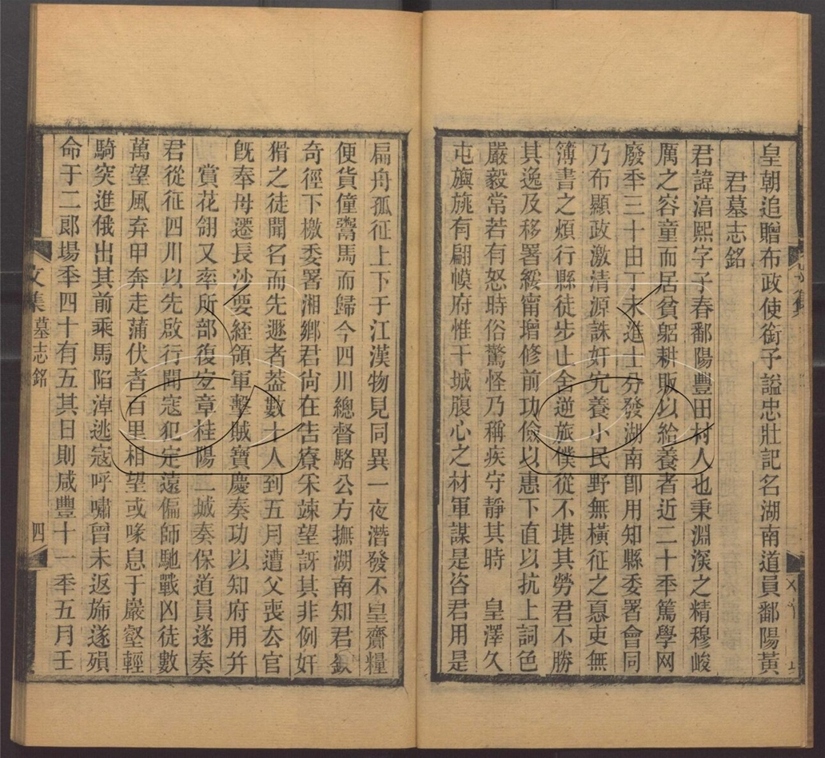 皇朝追贈布政使銜予謚忠壯記名湖南道員鄱陽黃
君墓志銘
君諱湻熙字子春鄱陽豐田村人也秉淵㴱之精穆峻
厲之容童而居貧躬耕販以給養者近二十秊篤學网
廢秊三十由丁未進士分發湖南卽用知縣委署會同
乃布顯政激清源誅奸宄養小民野無橫征之慐吏無
簿書之煩行縣徒步止舍逆旅僕從不堪其勞君不勝
其逸及移署綏甯增修前功儉以惠下直以抗上詞色
嚴毅常若有怒時俗驚怪乃稱疾守靜其時　皇澤久
屯旟旐有翩幙府惟干城腹心之材軍謀是咨君用是
扁舟孤征上下于江漢物見同異一夜潛發不皇齎糧
便貨僮鬻馬而歸今四川總督駱公方撫湖南知君嶔
奇徑下檄委署湘鄉君尙在告寮寀竦望訝其非例奸
猾之徒聞名而先遯者葢數十人到五月遭父喪厺官
旣奉母遷長沙要絰領軍擊賊寶慶奏功以知府用幷
賞花翎又率所部復宜章桂陽二城奏保道員遂奏
君從征四川以先啟行聞寇犯定遠偏師馳戰凶徒數
萬望風弃甲奔走蒲伏者百里相望或喙息于巖壑輕
騎突進俄出其前乘馬陷淖逃寇呼嘯曾未返斾遂殞
命于二郞場秊四十有五其日則咸豐十一秊五月壬
文集 墓志銘 四